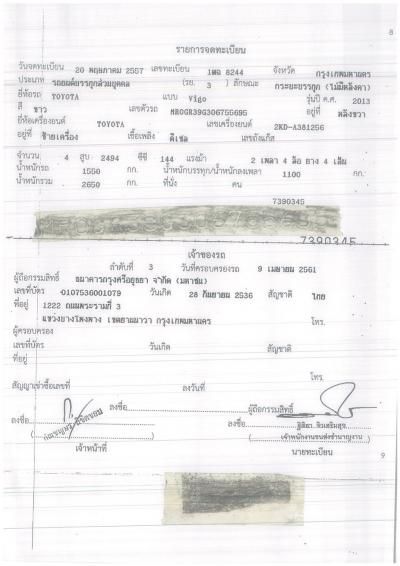 8
รายการจดทะเบียน
วันจดทะเบียน 20 พฤษภาคม 2557 เลขทะเบียน 1ฒฉ 8244 จังหวัด กรุงเทพมหานคร
ประเภท รถยนต์บรรทุกส่วนบุคคล (รย. 3 ) ลักษณะ กระบะบรรทุก (ไม่มีหลังคา)
ยี่ห้อรถ TOYOTA แบบ Vigo รุ่นปี ค.ศ. 2013
สี ขาว เลขตัวรถ MR0GR39G306755695 อยู่ที่ หลังขวา
ยี่ห้อเครื่องยนต์ TOYOTA เลขเครื่องยนต์ 2KD-A381256
อยู่ที่ ซ้ายเครื่อง เชื้อเพลิง ดีเซล เลขถังแก๊ส
จำนวน 4 สูบ 2494 ซีซี 144 แรงม้า 2 เพลา 4 ล้อ ยาง 4 เส้น
น้ำหนักรถ 1550 กก. น้ำหนักบรรทุก/น้ำหนักลงเพลา 1100 กก.
น้ำหนักรวม 2650 กก. ที่นั่ง คน
7390345
7390345
เจ้าของรถ
ลำดับที่ 3 วันที่ครอบครองรถ 9 เมษายน 2561
ผู้ถือกรรมสิทธิ์ ธนาคารกรุงศรีอยุธยา จำกัด (มหาชน)
เลขที่บัตร 0107536001079 วันเกิด 28 กันยายน 2536 สัญชาติ ไทย
ที่อยู่ 1222 ถนนพระรามที่ 3
แขวงบางโพงพาง เขตยานนาวา กรุงเทพมหานคร โทร.
ผู้ครอบครอง
เลขที่บัตร วันเกิด สัญชาติ
ที่อยู่
โทร.
สัญญาเช่าซื้อเลขที่ ลงวันที่
ลงชื่อ ผู้ถือกรรมสิทธิ์
ลงชื่อ ลงชื่อ
เจ้าพนักงานขนส่งชำนาญงาน
เจ้าหน้าที่ นายทะเบียน
9